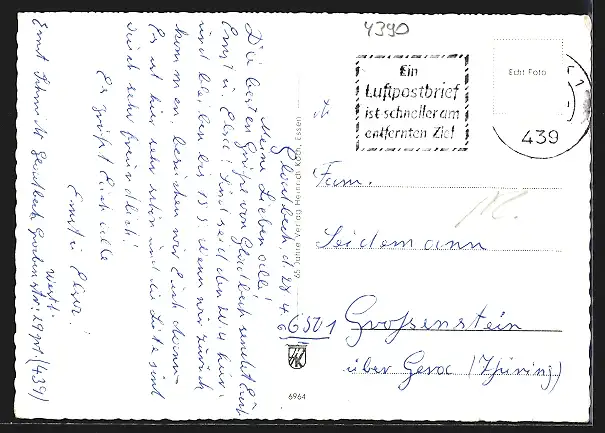 Gladbeck, d. 28.4.6
Meine Lieben all!
Die besten Grüße von Gladbeck sendet Euch
Ernst u. Elser! Sind seit den 20.4 hier
und bleiben bis 13.5. wenn wir zurück
kommen, besuchen wir Euch
Es ist hier sehr schön und die Leute sind
auch sehr freundlich!
Es grüßt Euch alle
Ernst u. Elser!
Westf.
Ernst Schmidt Gladbeck 29 (439)
65 Jahre Verlag Heinrich Koch, Essen
4390
Ein
Luftpostbrief
ist schneller am
entfernten Ziel
Echt Foto
439
Fam.
Seidemann
6501 Grossenstein
über Gera (Thüring)
6964